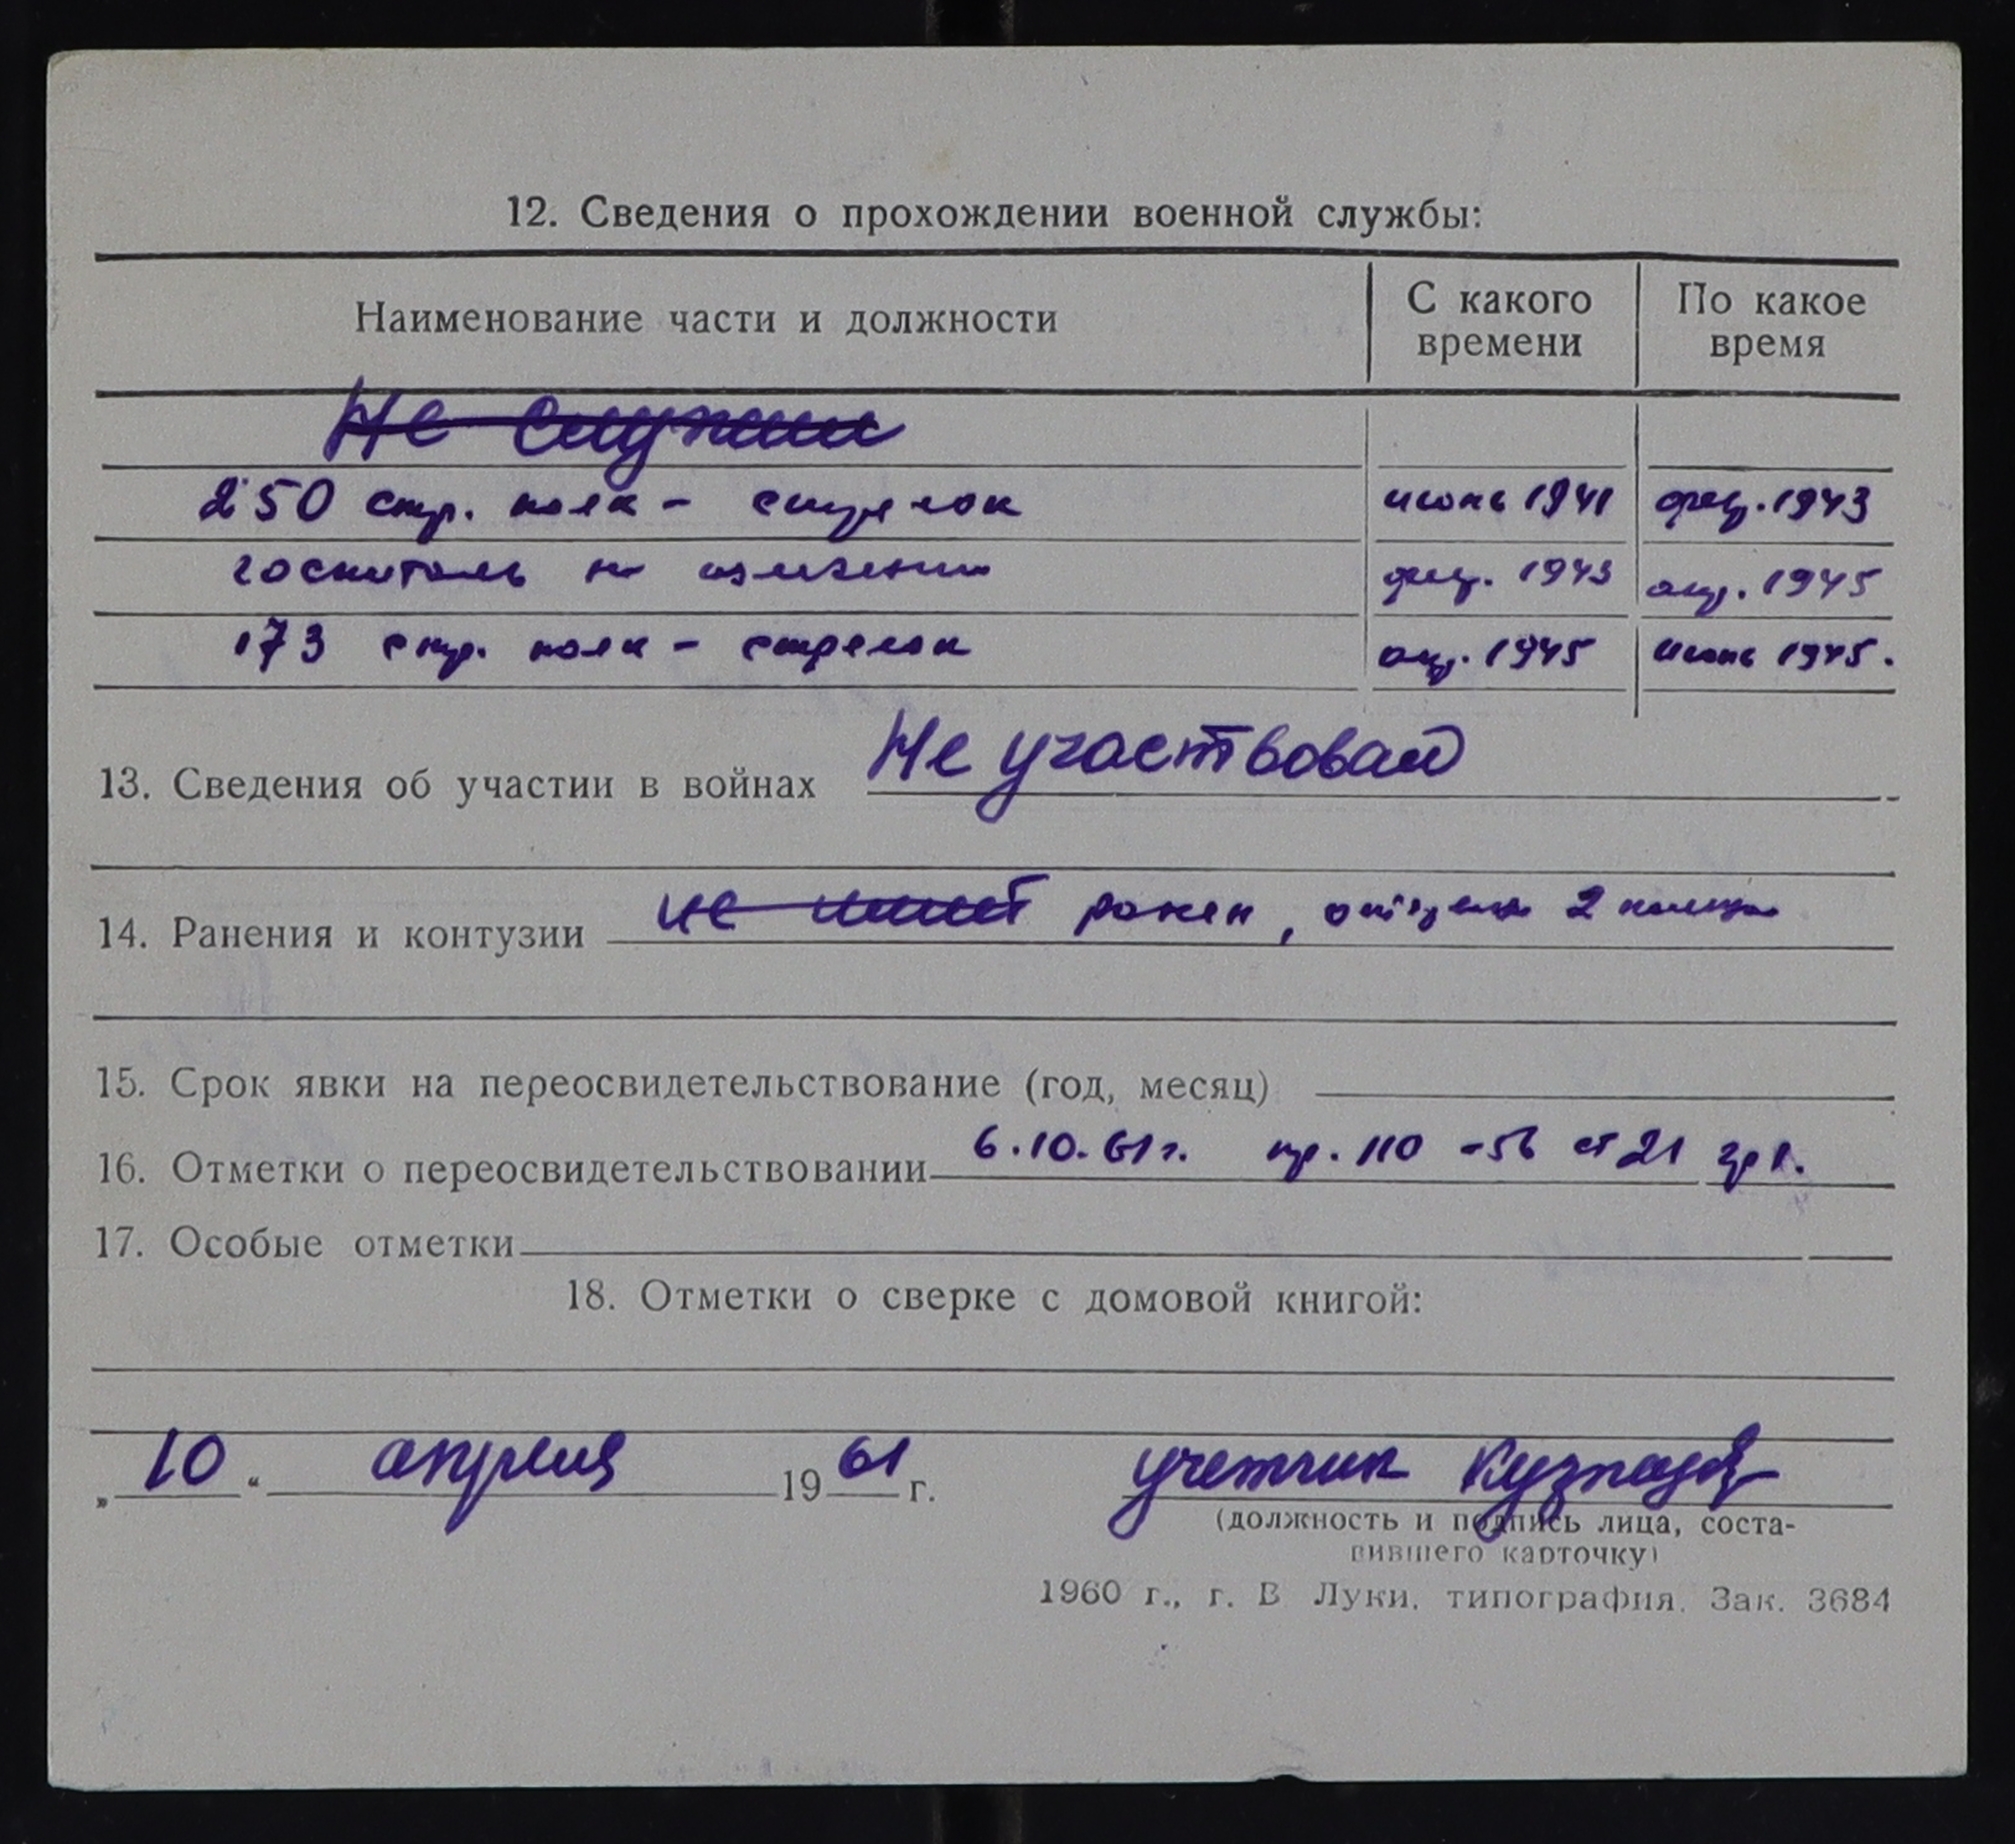 12. Сведения о прохождении военной службы:
Наименование части и должности
С какого времени
По какое время
Не служил
250 стр. полк - стрелок июнь 1941 февр. 1943
госпиталь на излечении февр. 1943 апр. 1945
173 стр. полк - стрелок апр. 1945 июнь 1945.
13. Сведения об участии в войнах Не участвовал
14. Ранения и контузии не имеет ранен, 2 пальца
15. Срок явки на переосвидетельствование (год, месяц)
16. Отметки о переосвидетельствовании 6.10.61 г. пр. 110 -56 ст 21 гр 1.
17. Особые отметки
18. Отметки о сверке с домовой книгой:
„ 10 “ апреля 1961 г. учетчик
(должность и подпись лица, соста-
вившего карточку)
1960 г., г. В Луки. типография. Зак. 3684